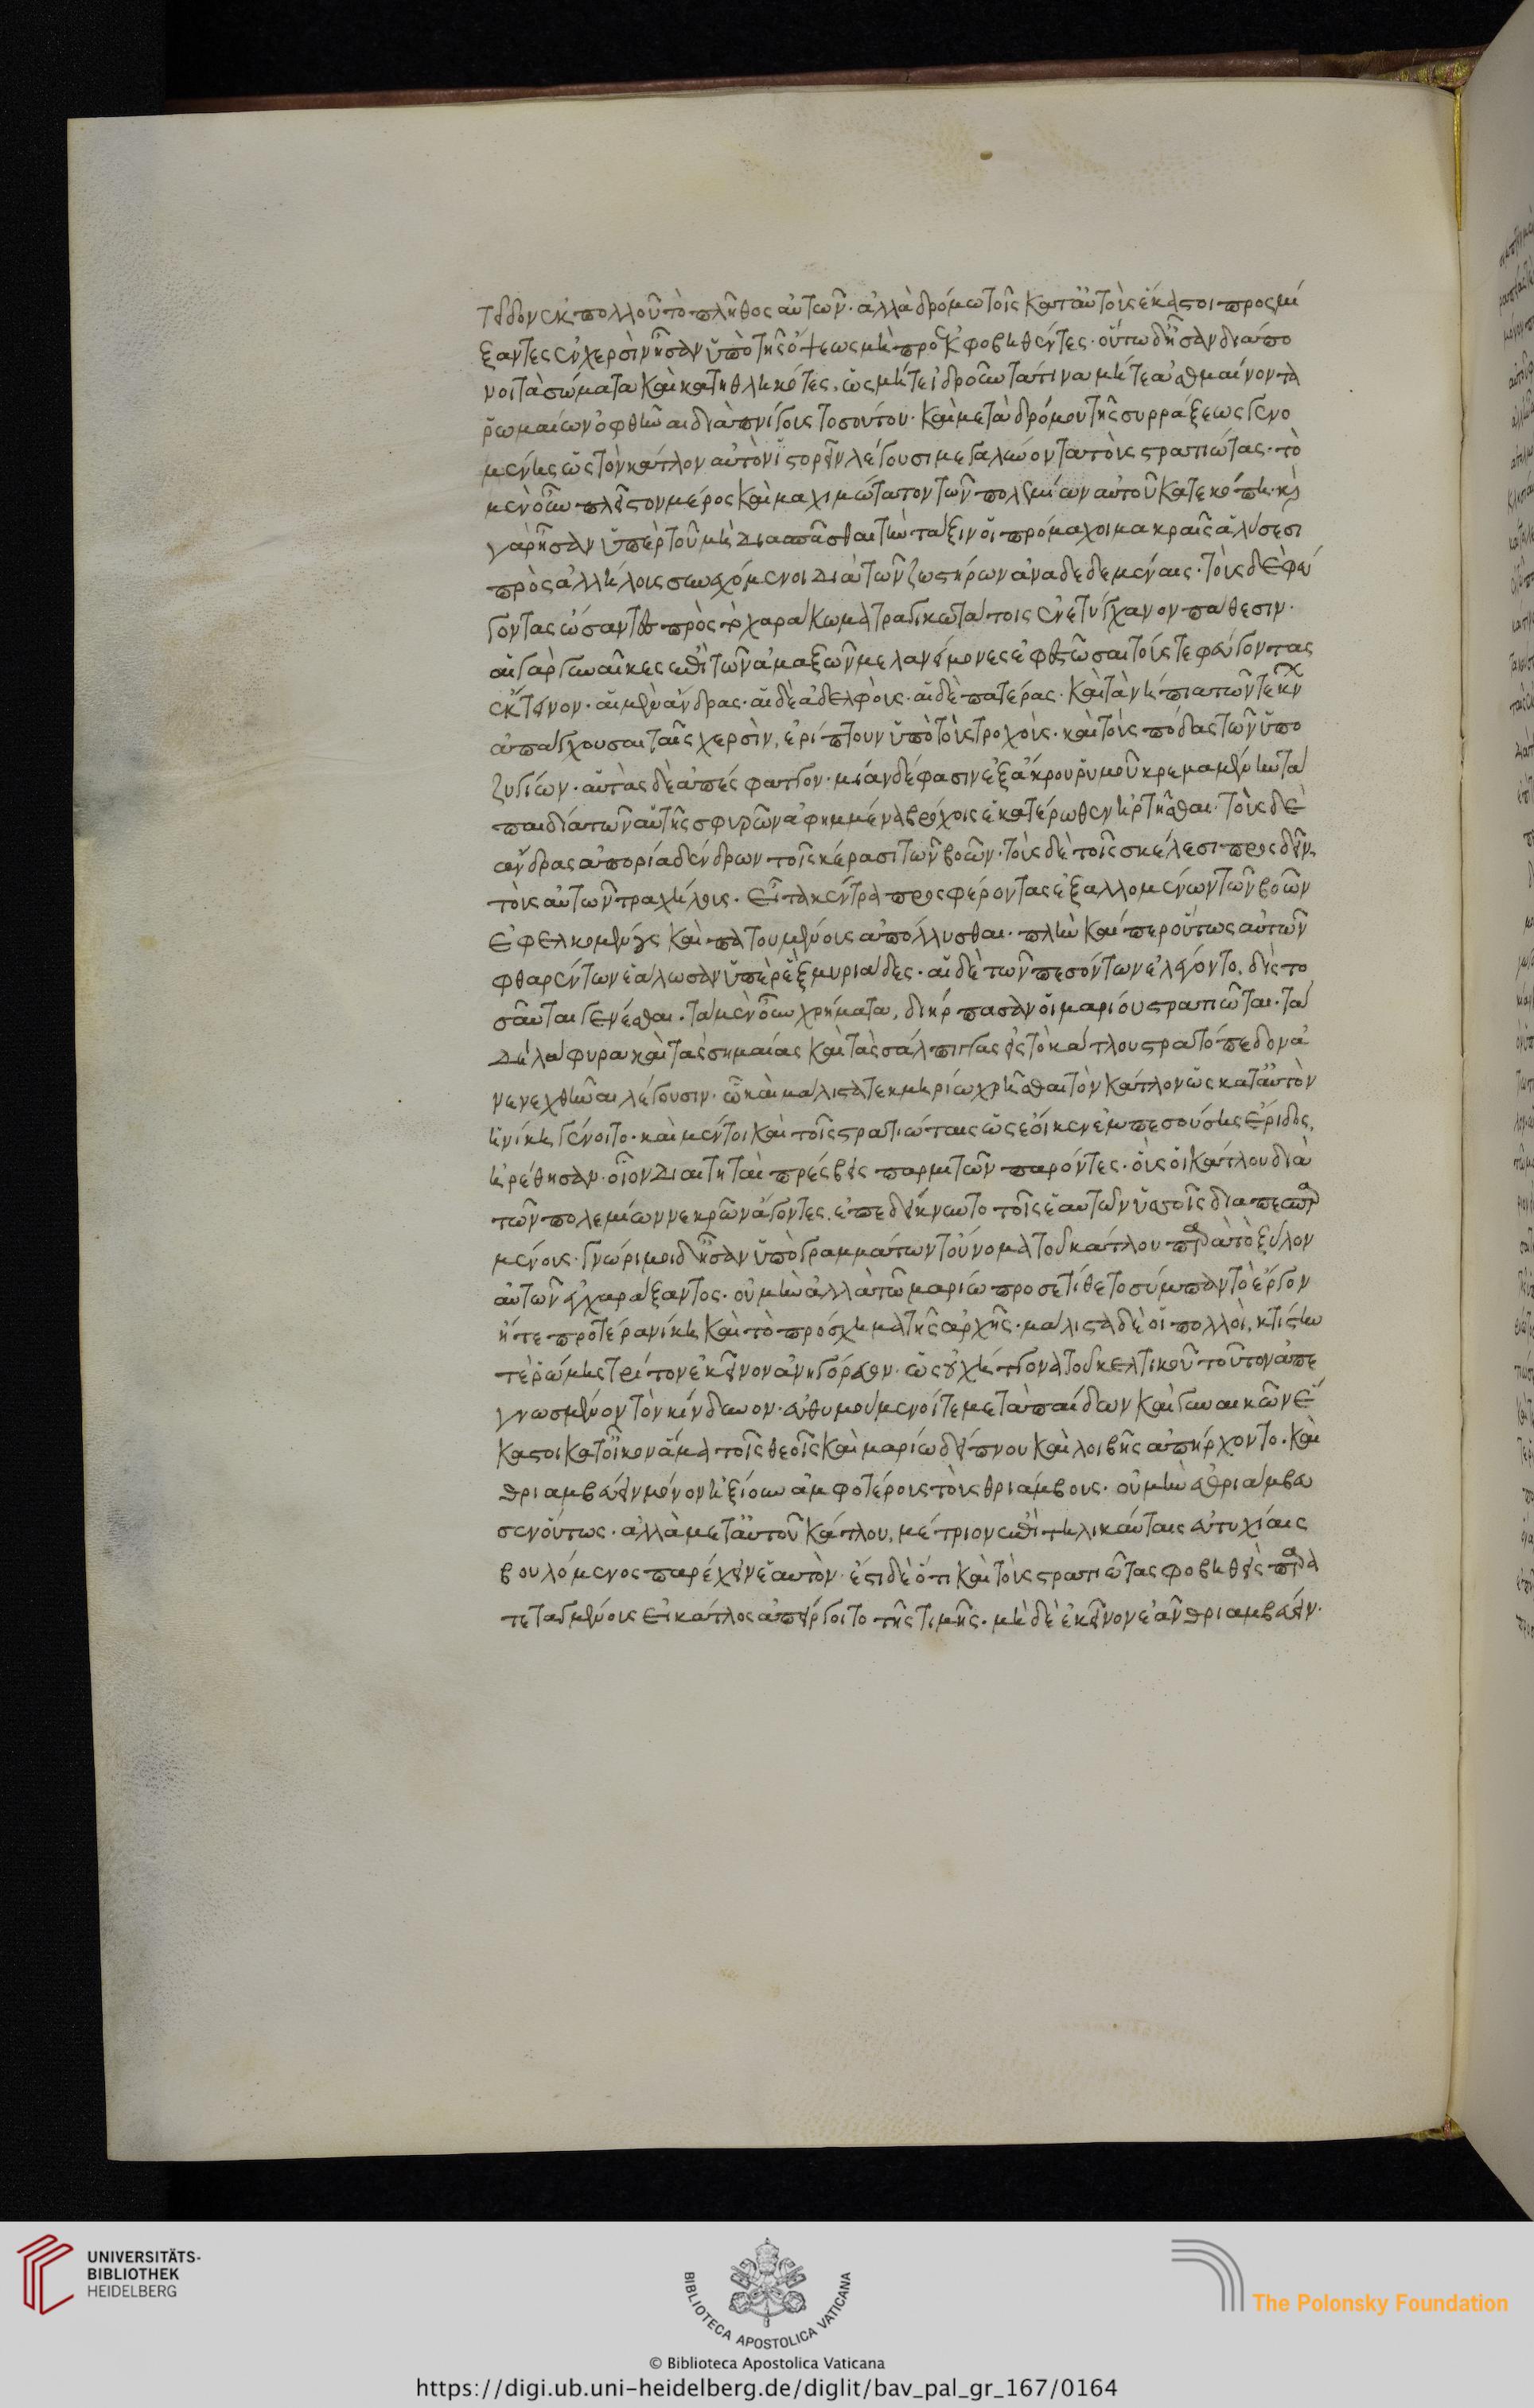 τεῖδον ἐκ πολλοῦ τὸ πλῆθος αὐτῶν· ἀλλὰ δρόμω τοῖς κατ' αὐτοὺς ἕκαστοι προσμί
ξαντες ἐν χερσὶν ἦσαν ὑπὸ τῆς ὄψεως μὴ προεκφοβηθέντες. οὕτω δ' ἦσαν διάπο
νοι τὰ σώματα καὶ κατηθληκότες, ὡς μήτε ἱδροῦντά τινα μήτε ἀσθμαίνοντα
ῥωμαίων ὀφθῆναι διὰ πνίγους τοσούτου· καὶ μετὰ δρόμου τῆς συρράξεως γενο
μένης ὡς τὸν κάτλον αὐτὸν ἱστορεῖν λέγουσι μεγαλύνοντα τοὺς στρατιώτας. τὸ
μὲν οὖν πλεῖστον μέρος καὶ μαχιμώτατον τῶν πολεμίων αὐτοῦ κατεκόπη· καὶ
γὰρ ἦσαν ὑπὲρ τοῦ μὴ διασπᾶσθαι τὴν τάξιν οἱ πρόμαχοι μακραῖς ἁλύσεσι
πρὸς ἀλλήλους συνεχόμενοι διὰ τῶν ζωστήρων ἀναδεδεμέναις· τοὺς δὲ φεύ
γοντας ὤσαντες πρὸς τὸ χαράκωμα τραγικωτάτοις ἐνετύγχανον πάθεσιν·
αἱ γὰρ γυναῖκες ἐπὶ τῶν ἁμαξῶν μελανείμονες ἐφεστῶσαι τούς τε φεύγοντας
ἔκτεινον. αἱ μὲν ἄνδρας. αἱ δὲ ἀδελφούς. αἱ δὲ πατέρας. καὶ τὰ νήπια τῶν τέκν
ἀπάγχουσαι ταῖς χερσὶν, ἐρίπτουν ὑπὸ τοὺς τροχοὺς. καὶ τοὺς πόδας τῶν ὑπο
ζυγίων. αὑτὰς δὲ ἀπέσφαττον. μίαν δέ φασιν ἐξ ἄκρου ῥυμοῦ κρεμαμένην τὰ
παιδία τῶν αὑτῆς σφυρῶν ἀφημμένα βρόχοις ἑκατέρωθεν ἠρτῆσθαι· τοὺς δὲ
ἄνδρας ἀπορία δένδρων τοῖς κέρασι τῶν βοῶν. τοὺς δὲ τοῖς σκέλεσι προσδεῖν,
τοὺς αὑτῶν τραχήλους. εἶτα κέντρα προσφέροντας ἐξαλλομένων τῶν βοῶν
ἐφελκομένους καὶ πατουμένους ἀπόλλυσθαι. πλὴν καίπερ οὕτως αὐτῶν
φθαρέντων ἑάλωσαν ὑπὲρ ἓξ μυριάδες. αἱ δὲ τῶν πεσόντων ἐλέγοντο, δὶς το
σαῦται γενέσθαι. τὰ μὲν οὖν χρήματα, διήρπασαν οἱ μαρίου στρατιῶται. τὰ
δὲ λάφυρα καὶ τὰς σημαίας καὶ τὰς σάλπιγγας εἰς τὸ κάτλου στρατόπεδον ἀ
νενεχθῆναι λέγουσιν. ὧ καὶ μάλιστα τεκμηρίω χρῆσθαι τὸν κάτλον ὡς κατ' αὐτὸν
ἡ νίκη γένοιτο. καὶ μέντοι καὶ τοῖς στρατιώταις ὡς ἔοικεν ἐμπεσούσης ἔριδος,
ἡρέθησαν. οἷον διαιτηταὶ πρέσβεις παρμιτῶν παρόντες. οὓς οἱ κάτλου διὰ
τῶν πολεμίων νεκρῶν ἄγοντες, ἐπεδείκνυντο τοῖς ἑαυτῶν ὑσσοῖς διαπεπαρ
μένους. γνώριμοι δ' ἦσαν ὑπὸ γραμμάτων τοὔνομα τοῦ κάτλου παρὰ τὸ ξύλον
αὐτῶν ἐγχαράξαντος. οὐ μὴν ἀλλὰ τῶ μαρίω προσετίθετο σύμπαν τὸ ἔργον
ἥ τε προτέρα νίκη καὶ τὸ πρόσχημα τῆς ἀρχῆς. μάλιστα δὲ οἱ πολλοὶ, κτίστην
τε ῥώμης τρίτον ἐκεῖνον ἀνηγόρευον. ὡς οὐχ ἥττονα τοῦ κελτικοῦ τοῦτον ἀπε
γνωσμένον τὸν κίνδυνον. εὐθυμούμενοί τε μετὰ παίδων καὶ γυναικῶν ἕ
καστοι κατ' οἶκον ἅμα τοῖς θεοῖς καὶ μαρίω δείπνου καὶ λοιβῆς ἀπήρχοντο. καὶ
θριαμβεύειν μόνον ἠξίουν ἀμφοτέρους τοὺς θριάμβους. οὐ μὴν ἐθριάμβευ
σεν οὕτως. ἀλλὰ μετ' αὐτοῦ κάτλου, μέτριον ἐπὶ τηλικαύταις εὐτυχίαις
βουλόμενος παρέχειν ἑαυτὸν. ἔστι δὲ ὅτι καὶ τοὺς στρατιώτας φοβηθεὶς παρα
τεταγμένους εἰ κάτλος ἀπείργοιτο τῆς τιμῆς. μὴ δὲ ἐκεῖνον ἐᾶν θριαμβεύειν.
UNIVERSITÄTS-
BIBLIOTHEK
HEIDELBERG
BIBLIOTECA APOSTOLICA VATICANA
The Polonsky Foundation
© Biblioteca Apostolica Vaticana
https://digi.ub.uni-heidelberg.de/diglit/bav_pal_gr_167/0164